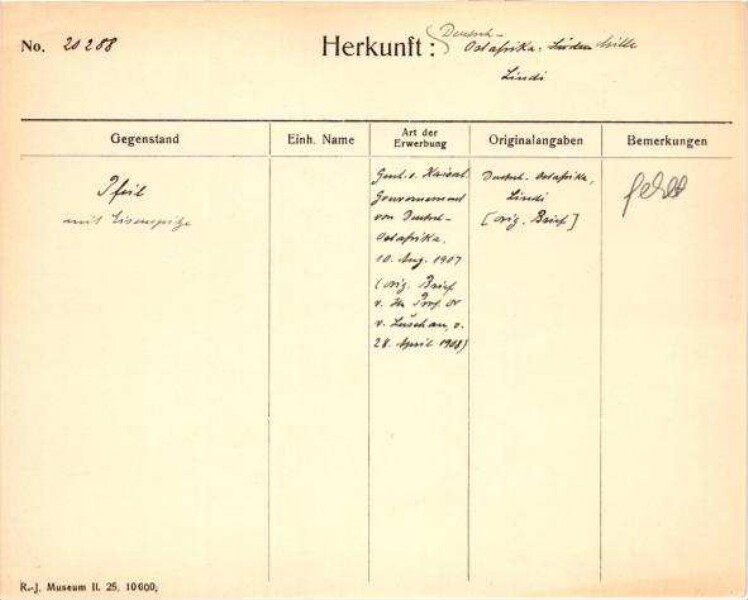 No. 20288
Herkunft: Deutsch-
Ostafrika: Süden Mitte
Lindi
Gegenstand
Einh. Name
Art der
Erwerbung
Originalangaben
Bemerkungen
Pfeil
mit Eisenspitze
Gesch. v. Kaiserl.
Gouvernement
von Deutsch-
Ostafrika.
10. Aug. 1907
(orig. Brief
v. Hr Prof. Dr
v. Luschan, v.
28. April 1908)
Deutsch-Ostafrika,
Lindi
[orig. Brief]
fehlt
R.-J. Museum II. 25. 10000;